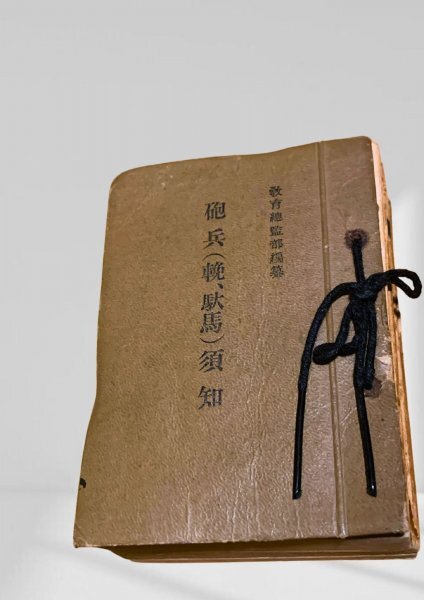 教育總監部編纂
砲兵(輓、駄馬)須知